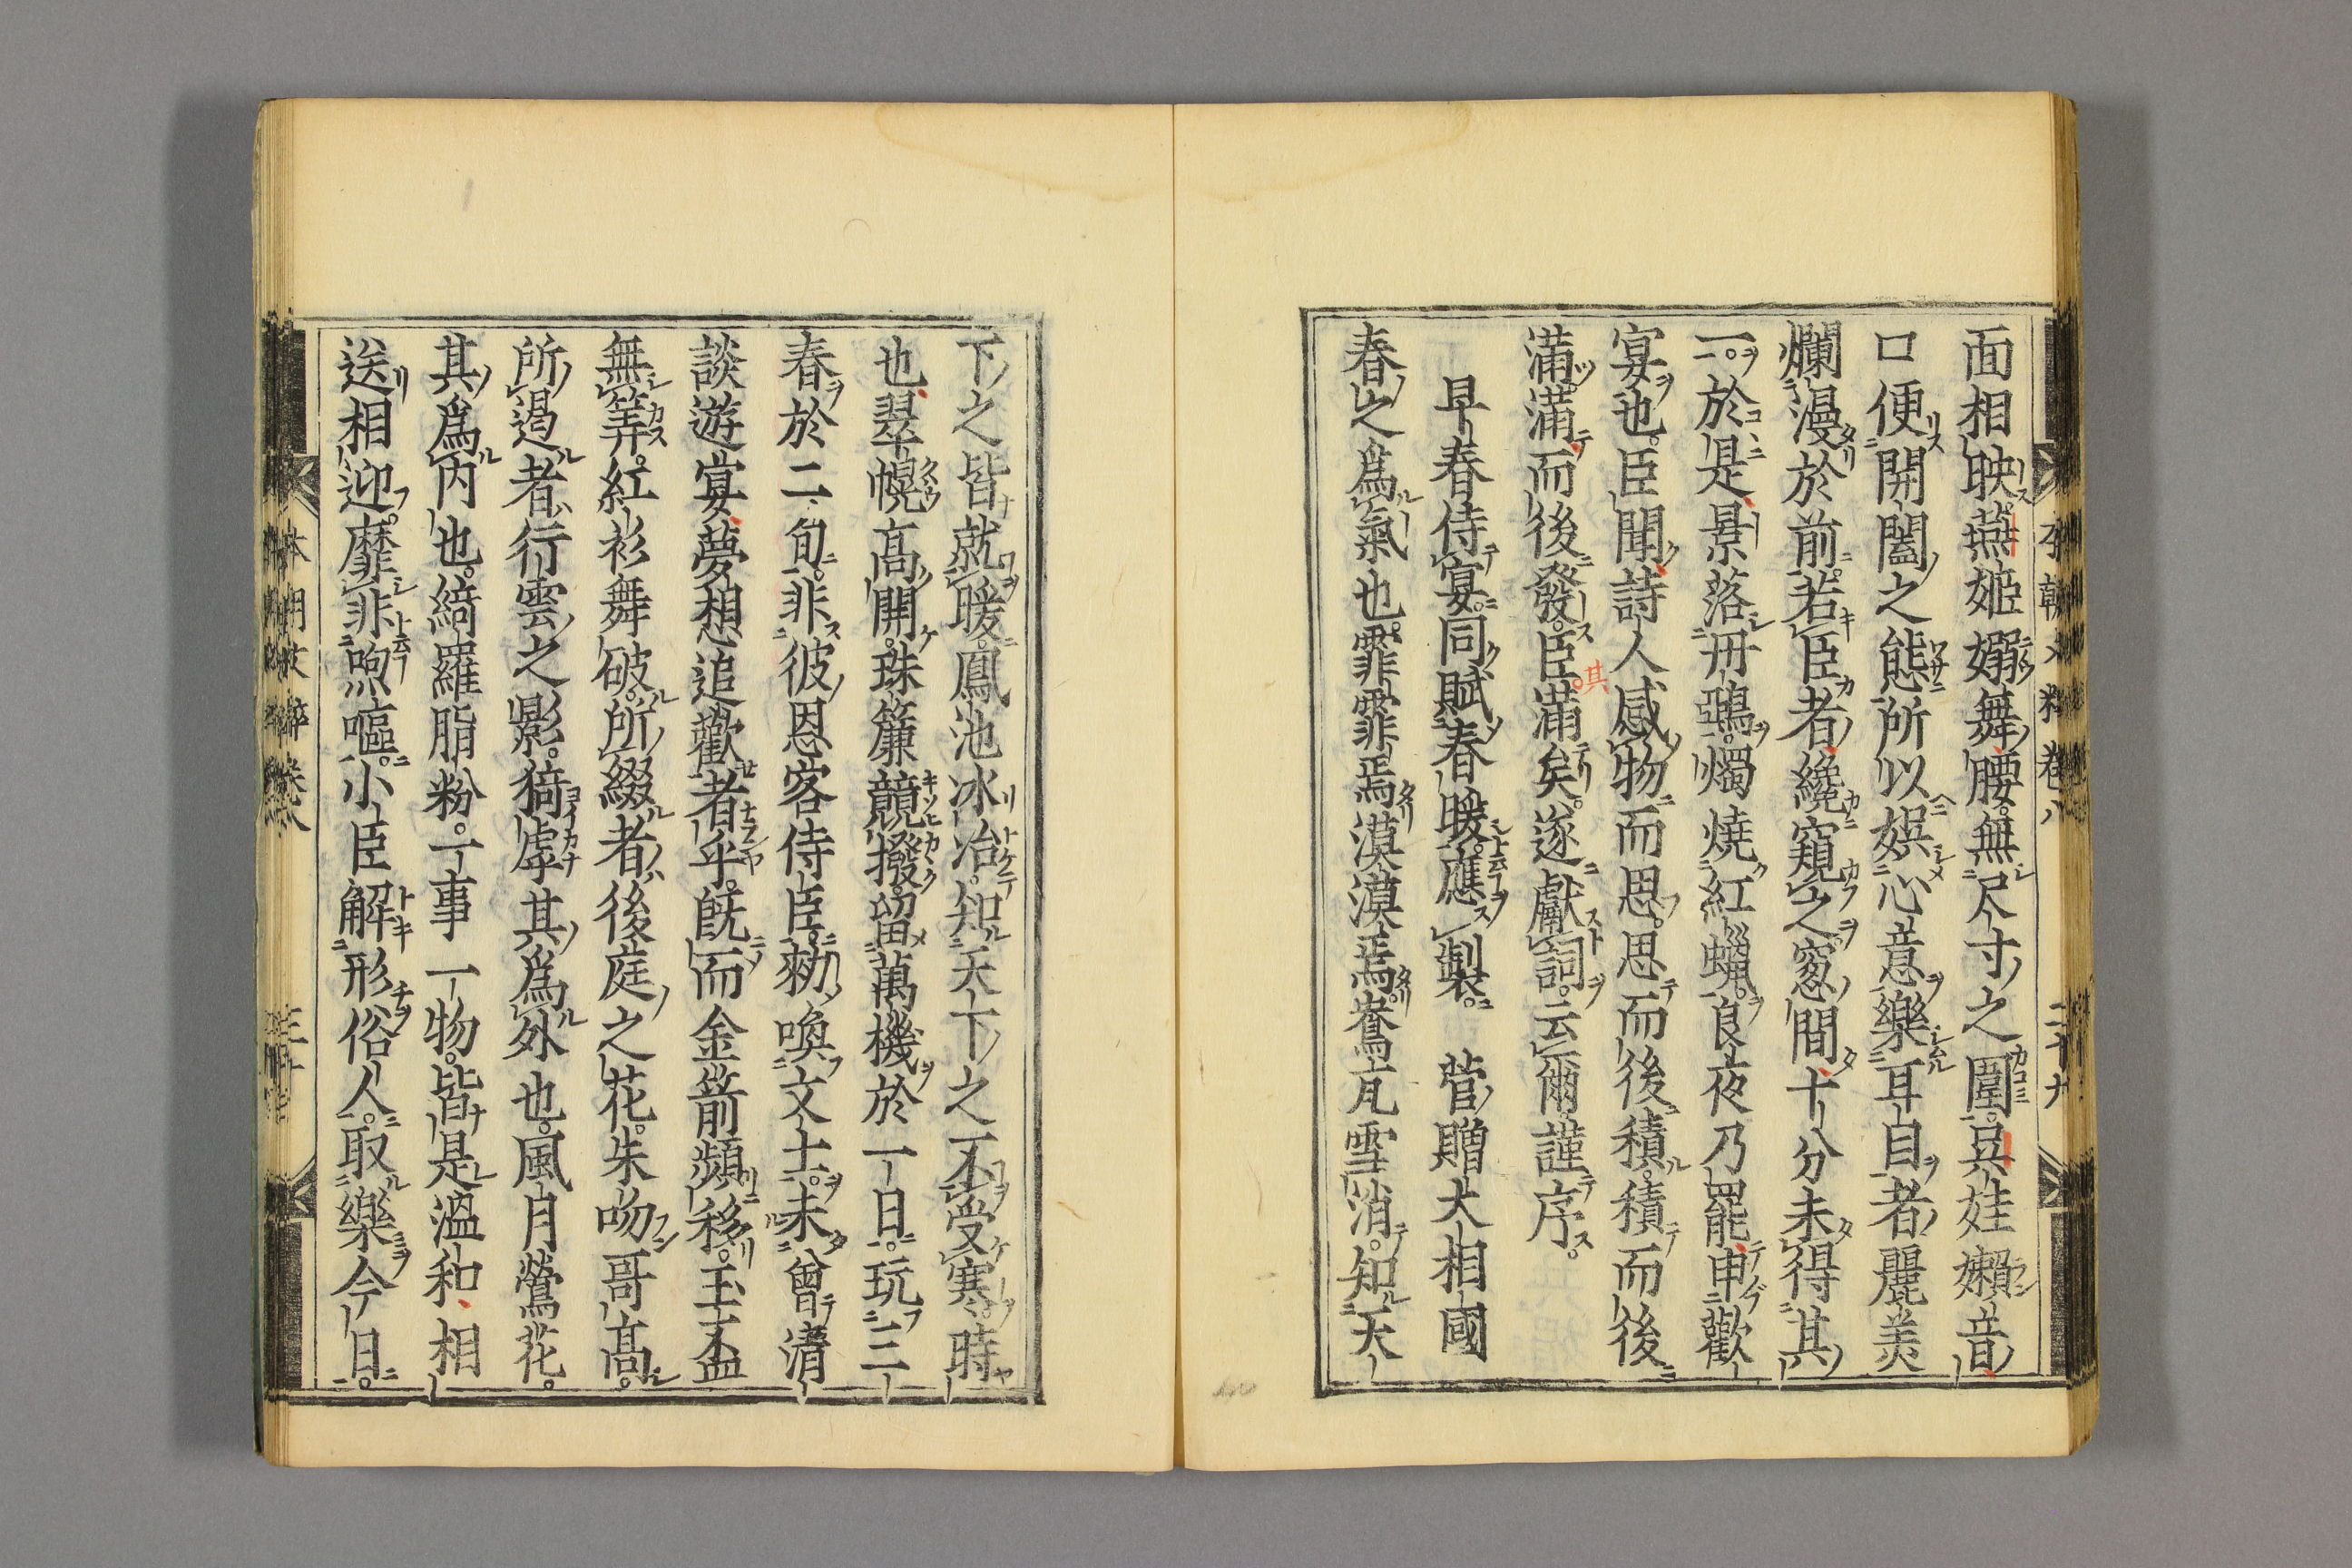 面相映。燕姫嫋舞腰。無尺寸之圍。呉娃嬾音
口便開闔之態。所以娯心意樂耳目者。麗美
爛漫於前。若臣者纔窺之窓間。十分未得其
一。於是景落丹鵶。燭燒紅蠟。良夜乃罷。申歡
宴也。臣聞詩人感物而思。思而後積。積而後
滿。滿而後發。臣其滿矣。遂獻詞。云爾。謹序。
早春侍宴。同賦春暖。應製。 菅贈大相國
春之爲氣也。霏霏焉漠漠焉。鴦瓦雪消。知天
下之皆就暖。鳳池冰冶。知天下之不受寒。時
也翠幌高開。珠簾競撥。留萬機於一日。玩三
春於二旬。非彼恩容侍臣。勑喚文士。未曾清
談遊宴。夢想追歡者乎。既而金箭頻移。玉盃
無筭。紅衫舞破。所綴者後庭之花。朱吻哥高。
所遏者行雲之影。猗虖其爲外也。風月鶯花。
其爲内也。綺羅脂粉。一事一物。皆是温和。相
送相迎。靡非喣嘔。小臣解形俗人。取樂今日。
本朝文粹卷八
二十九
本朝文粹卷八
三十